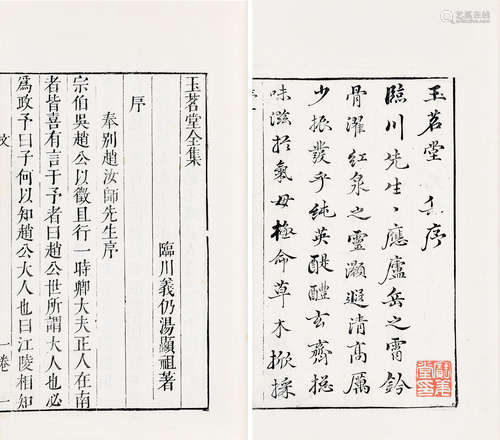 玉茗堂 序
臨川先生應廬岳之霄鈐
骨濯紅泉之靈灝遐清高厲
少振發乎純英醍醴玄齋摇
味滋於氣毋極命草木掀採
玉茗堂全集
臨川義仍湯顯祖著
序
奉別趙汝師先生序
宗伯吳趙公以徵且行一時卿大夫正人在南
者皆喜有言于予者曰趙公世所謂大人也必
爲政予曰子何以知趙公大人也曰江陵相知
文
一卷
一